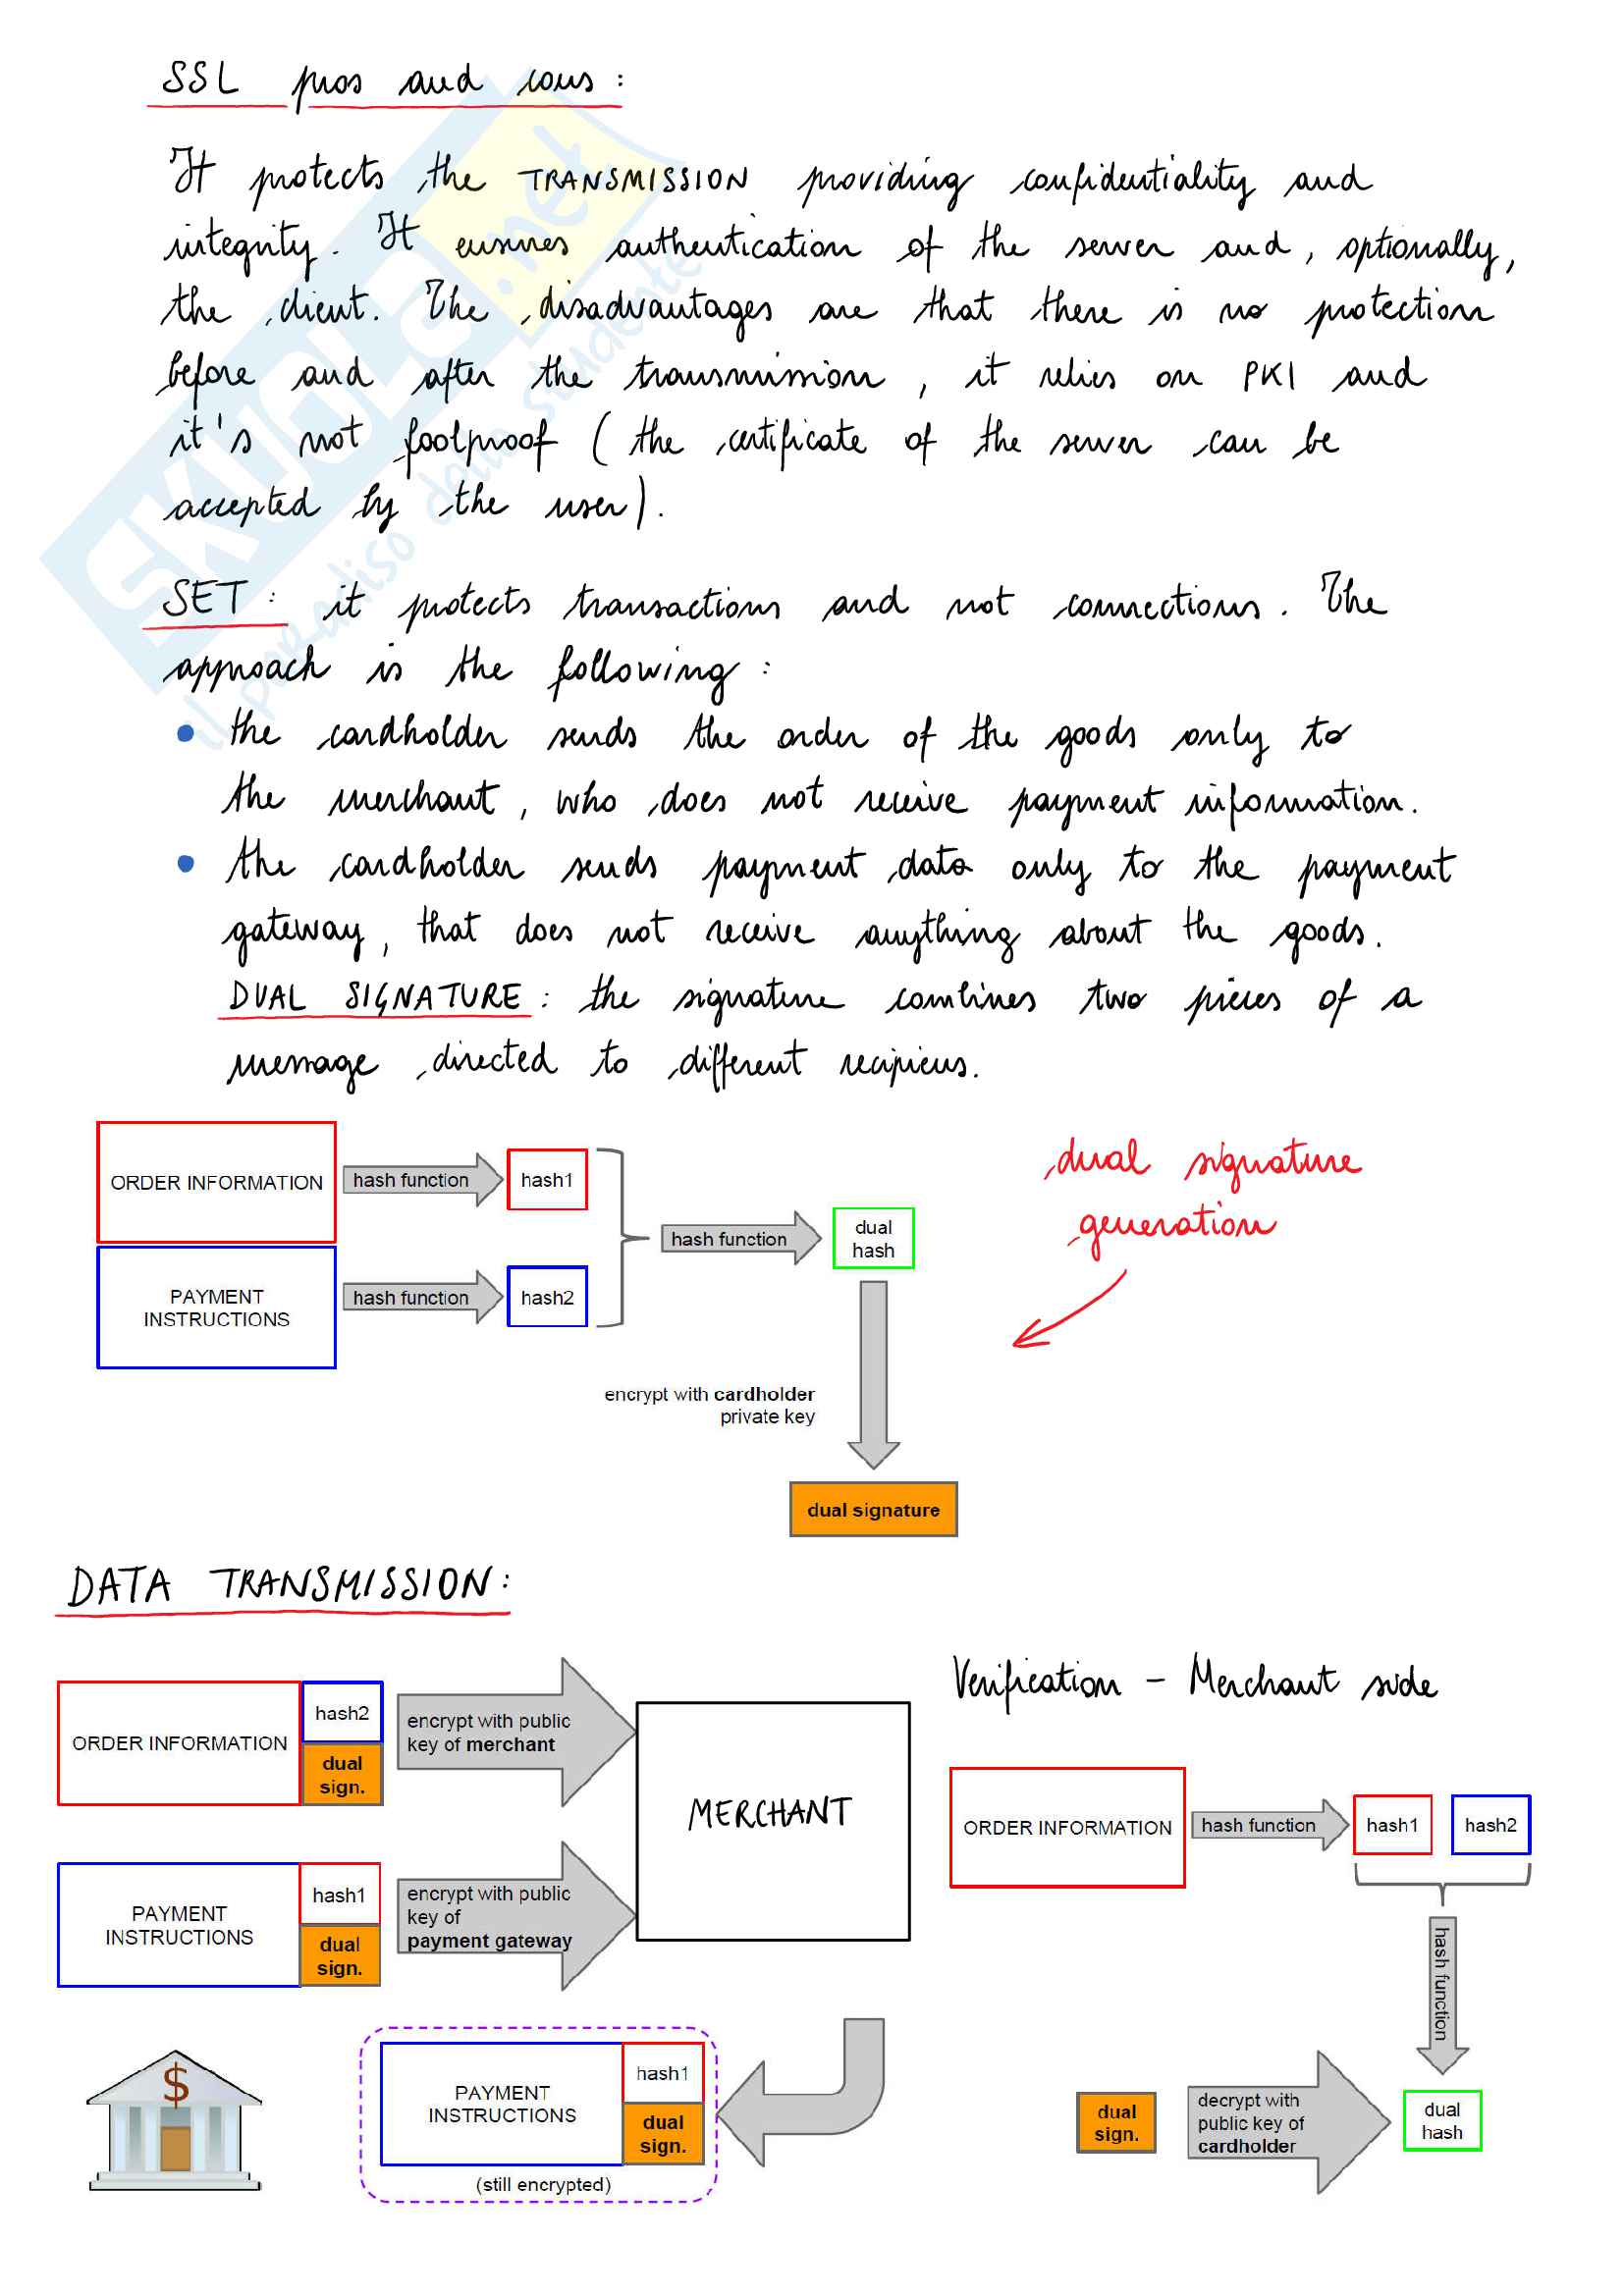 SSL pros and cons:
It protects the TRANSMISSION providing confidentiality and
integrity. It ensures authentication of the server and, optionally,
the client. The disadvantages are that there is no protection
before and after the transmission, it relies on PKI and
it's not foolproof (the certificate of the server can be
accepted by the user).
SET: it protects transactions and not connections. The
approach is the following:
• the cardholder sends the order of the goods only to
the merchant, who does not receive payment information.
• the cardholder sends payment data only to the payment
gateway, that does not receive anything about the goods.
DUAL SIGNATURE: the signature combines two pieces of a
message directed to different recipiens.
ORDER INFORMATION
hash function
hash1
PAYMENT
INSTRUCTIONS
hash function
hash2
hash function
dual
hash
dual signature
generation
encrypt with cardholder
private key
dual signature
DATA TRANSMISSION:
ORDER INFORMATION
hash2
dual
sign.
encrypt with public
key of merchant
PAYMENT
INSTRUCTIONS
hash1
dual
sign.
encrypt with public
key of
payment gateway
MERCHANT
$
PAYMENT
INSTRUCTIONS
hash1
dual
sign.
(still encrypted)
Verification - Merchant side
ORDER INFORMATION
hash function
hash1
hash2
hash function
dual
sign.
decrypt with
public key of
cardholder
dual
hash
SKUOLA.net
il paradiso dello studente